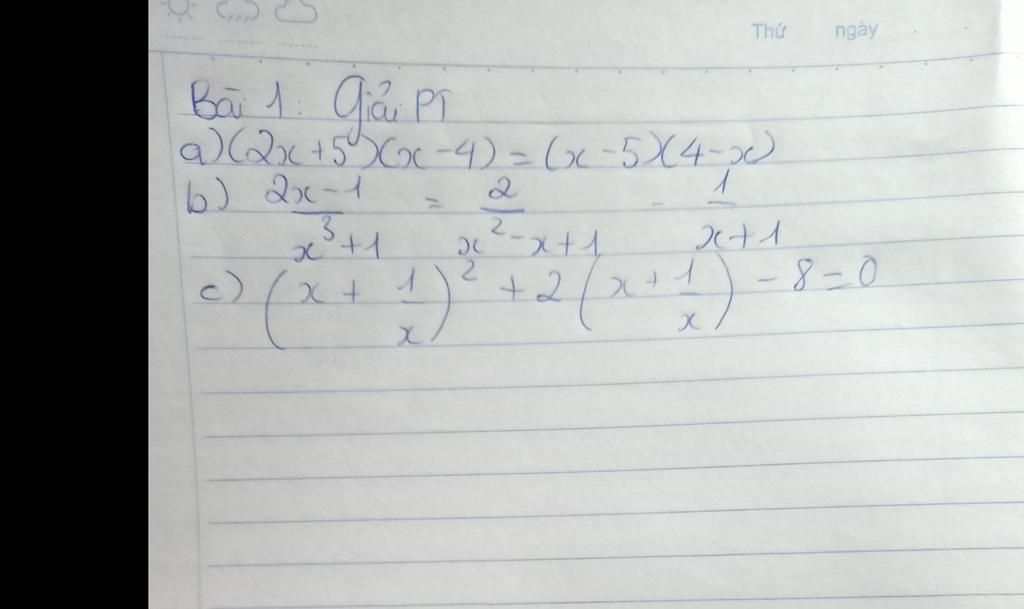 Thứ ngày
Bài 1: Giải PT
a) (2x+5)(x-4) = (x-5)(4-x)
b) \frac{2x-1}{x^3+1} = \frac{2}{x^2-x+1} - \frac{1}{x+1}
c) \left(x + \frac{1}{x}\right)^2 + 2\left(x + \frac{1}{x}\right) - 8 = 0